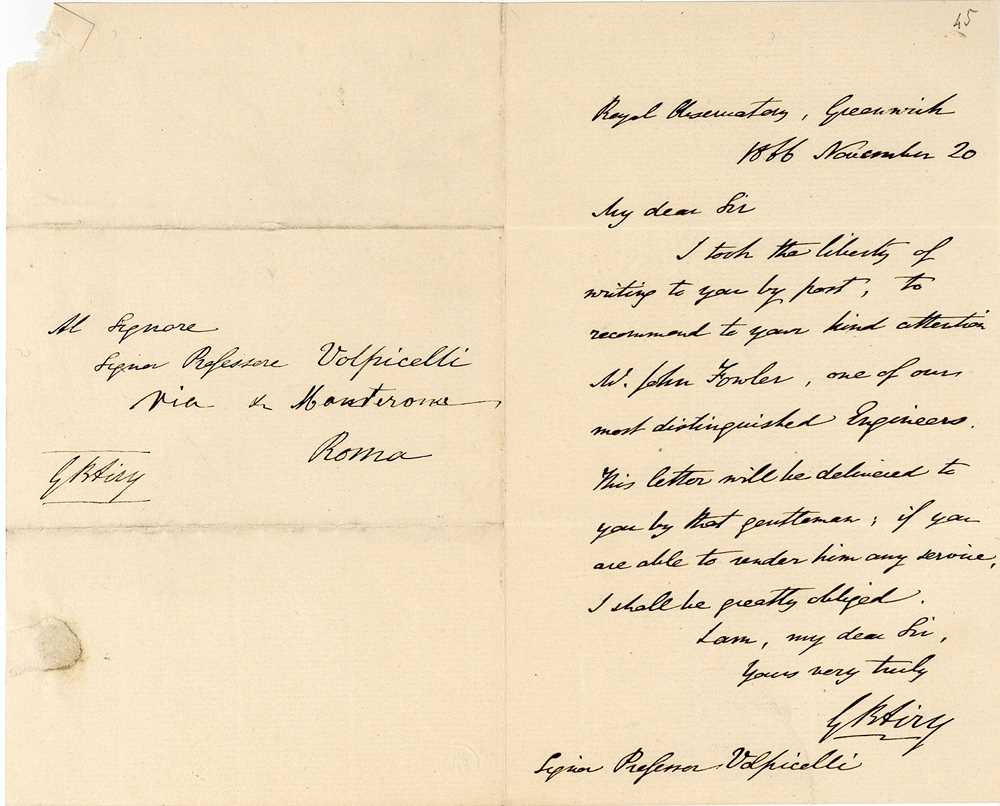 45
Royal Observatory, Greenwich
1866 November 20
My dear Sir
I took the liberty of
writing to you by post, to
recommend to your kind attention
Mr. John Fowler, one of our
most distinguished Engineers.
This letter will be delivered to
you by that gentleman; if you
are able to render him any service,
I shall be greatly obliged.
I am, my dear Sir,
Yours very truly
G B Airy
Signor Professor Volpicelli
Al Signore
Signor Professore Volpicelli
Via di Monterone
Roma
G B Airy